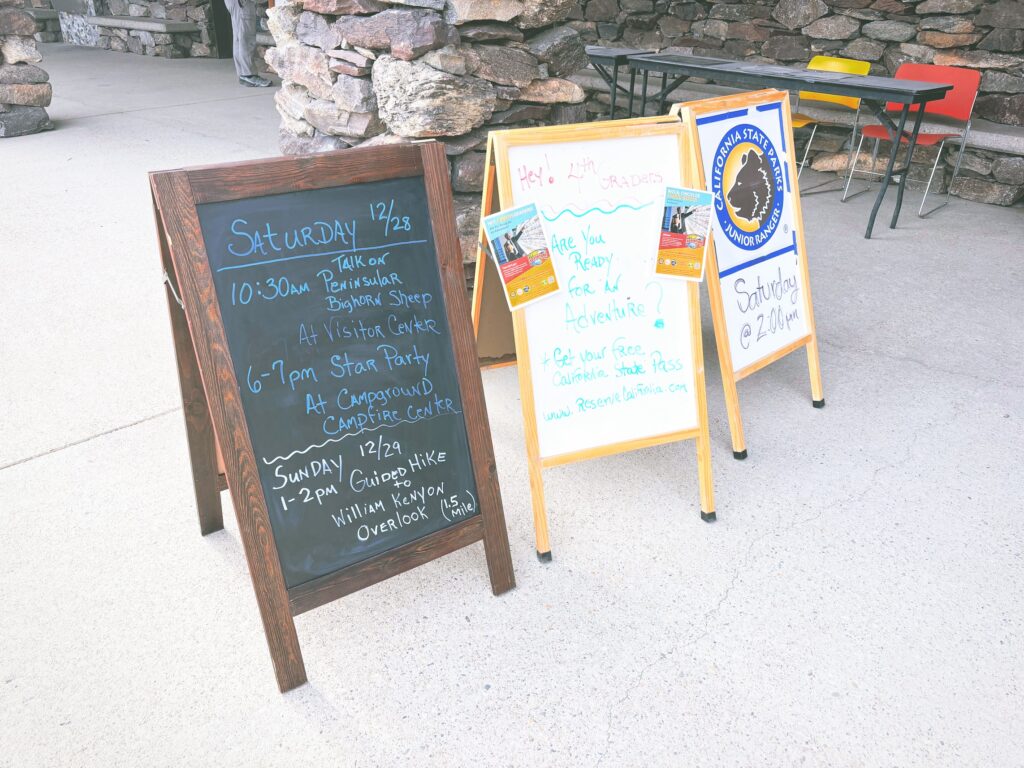 SATURDAY 12/28
10:30AM TALK ON
PENINSULAR
BIGHORN SHEEP
AT VISITOR CENTER
6-7pm STAR PARTY
AT CAMPGROUND
CAMPFIRE CENTER
SUNDAY 12/29
1-2PM GUIDED HIKE
to
WILLIAM KENYON
OVERLOOK (1.5 MILE)
Hey! 4th GRADERS
ARE YOU
READY
FOR AN
ADVENTURE?
+ Get your free
California State Pass
www.ReserveCalifornia.com
CALIFORNIA STATE PARKS
JUNIOR RANGER
®
Saturday
@ 2:00pm